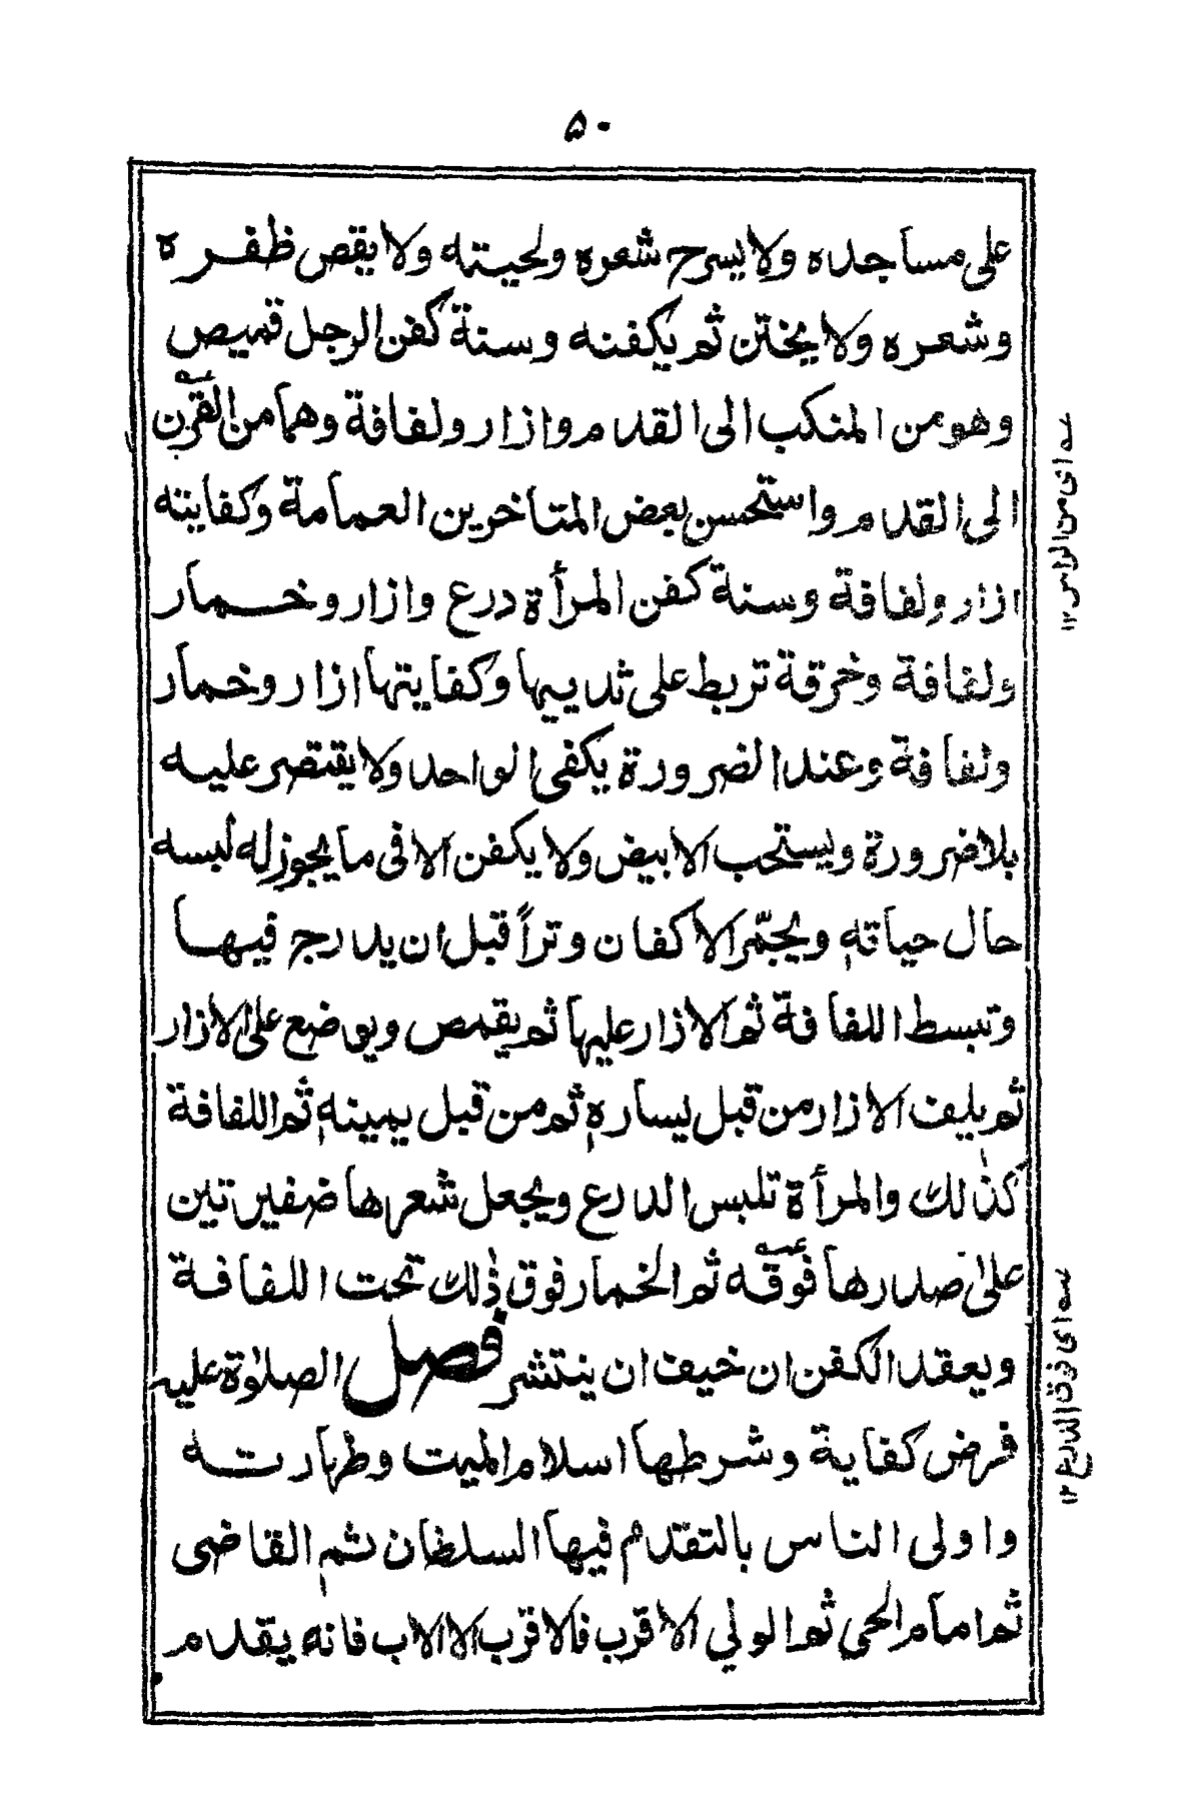 ۵۰
على مساجده ولا يسرح شعره ولحيته ولا يقص ظفره
وشعره ولا يختن ثم يكفنه وسنة كفن الرجل قميص
وهو من المنكب الى القدم وازار ولفافة وهما من القرن
الى القدم واستحسن بعض المتاخرين العمامة وكفايته
ازار ولفافة وسنة كفن المرأة درع وازار وخمار
ولفافة وخرقة تربط على ثدييها وكفايتها ازار وخمار
ولفافة وعند الضرورة يكفى الواحد ولا يقتصر عليه
بلا ضرورة ويستحب الابيض ولا يكفن الا فى ما يجوز له لبسه
حال حياته ويجمّر الاكفان وتراً قبل ان يدرج فيها
وتبسط اللفافة ثم الازار عليها ثم يقمص ويوضع على الازار
ثم يلف الازار من قبل يساره ثم من قبل يمينه ثم اللفافة
كذلك والمرأة تلبس الدرع ويجعل شعرها ضفيرتين
على صدرها فوقه ثم الخمار فوق ذلك تحت اللفافة
ويعقد الكفن ان خيف ان ينتشر فصل الصلوة عليه
فرض كفاية وشرطها اسلام الميت وطهارته
واولى الناس بالتقدم فيها السلطان ثم القاضى
ثم امام الحى ثم الولي الاقرب فالاقرب الا الاب فانه يقدم
عـه اى من الراس ١٢
عـه اى فوق الدرع ١٢